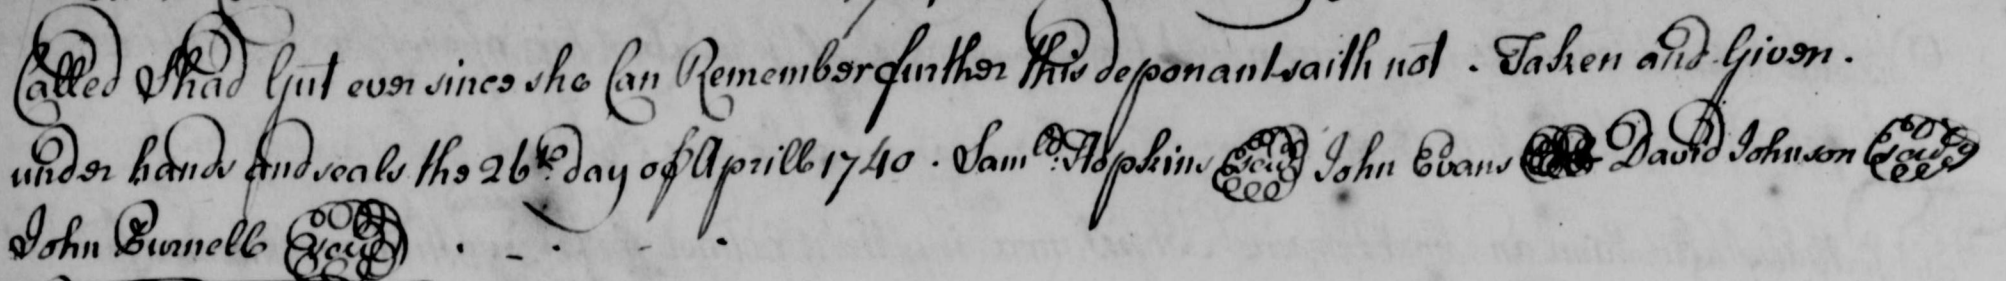 Called Shad Gut ever since she Can Remember further this deponant saith not. Taken and Given.
under hands and seals the 26th day of Aprill 1740. Samll. Hopkins Seal John Evans Seal David Johnson Seal
John Burnell Seal